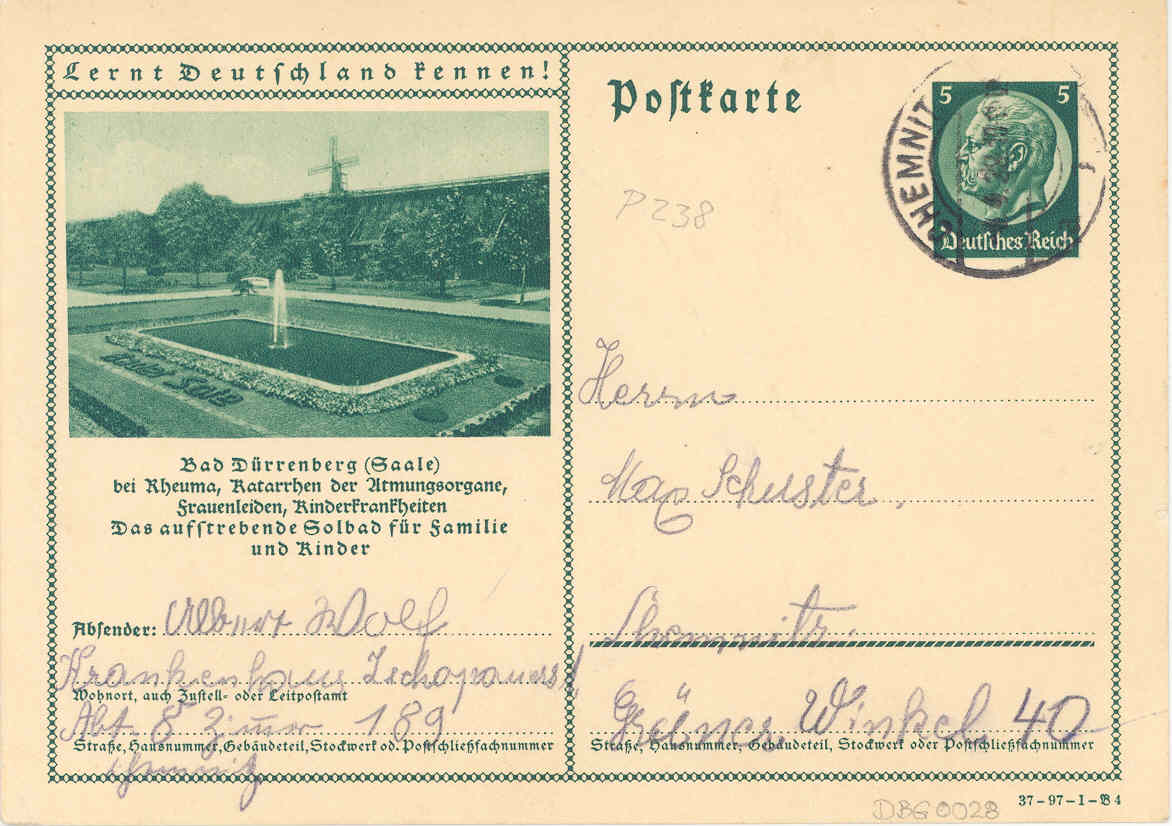 Lernt Deutschland kennen!
Postkarte
5 5
Deutsches Reich
CHEMNIT
P 238
Bad Dürrenberg (Saale)
bei Rheuma, Katarrhen der Atmungsorgane,
Frauenleiden, Kinderkrankheiten
Das aufstrebende Solbad für Familie
und Kinder
Absender: Albert Wolf
Krankenhaus Zschopauerst
Wohnort, auch Zustell- oder Leitpostamt
Abt. 8 Zimmer 189
Straße, Hausnummer, Gebäudeteil, Stockwerk od. Postschließfachnummer
Chemnitz
Herrn
Max Schuster.
Chemnitz.
Grüner Winkel 40
Straße, Hausnummer, Gebäudeteil, Stockwerk oder Postschließfachnummer
37-97-1-B4
DBG0028